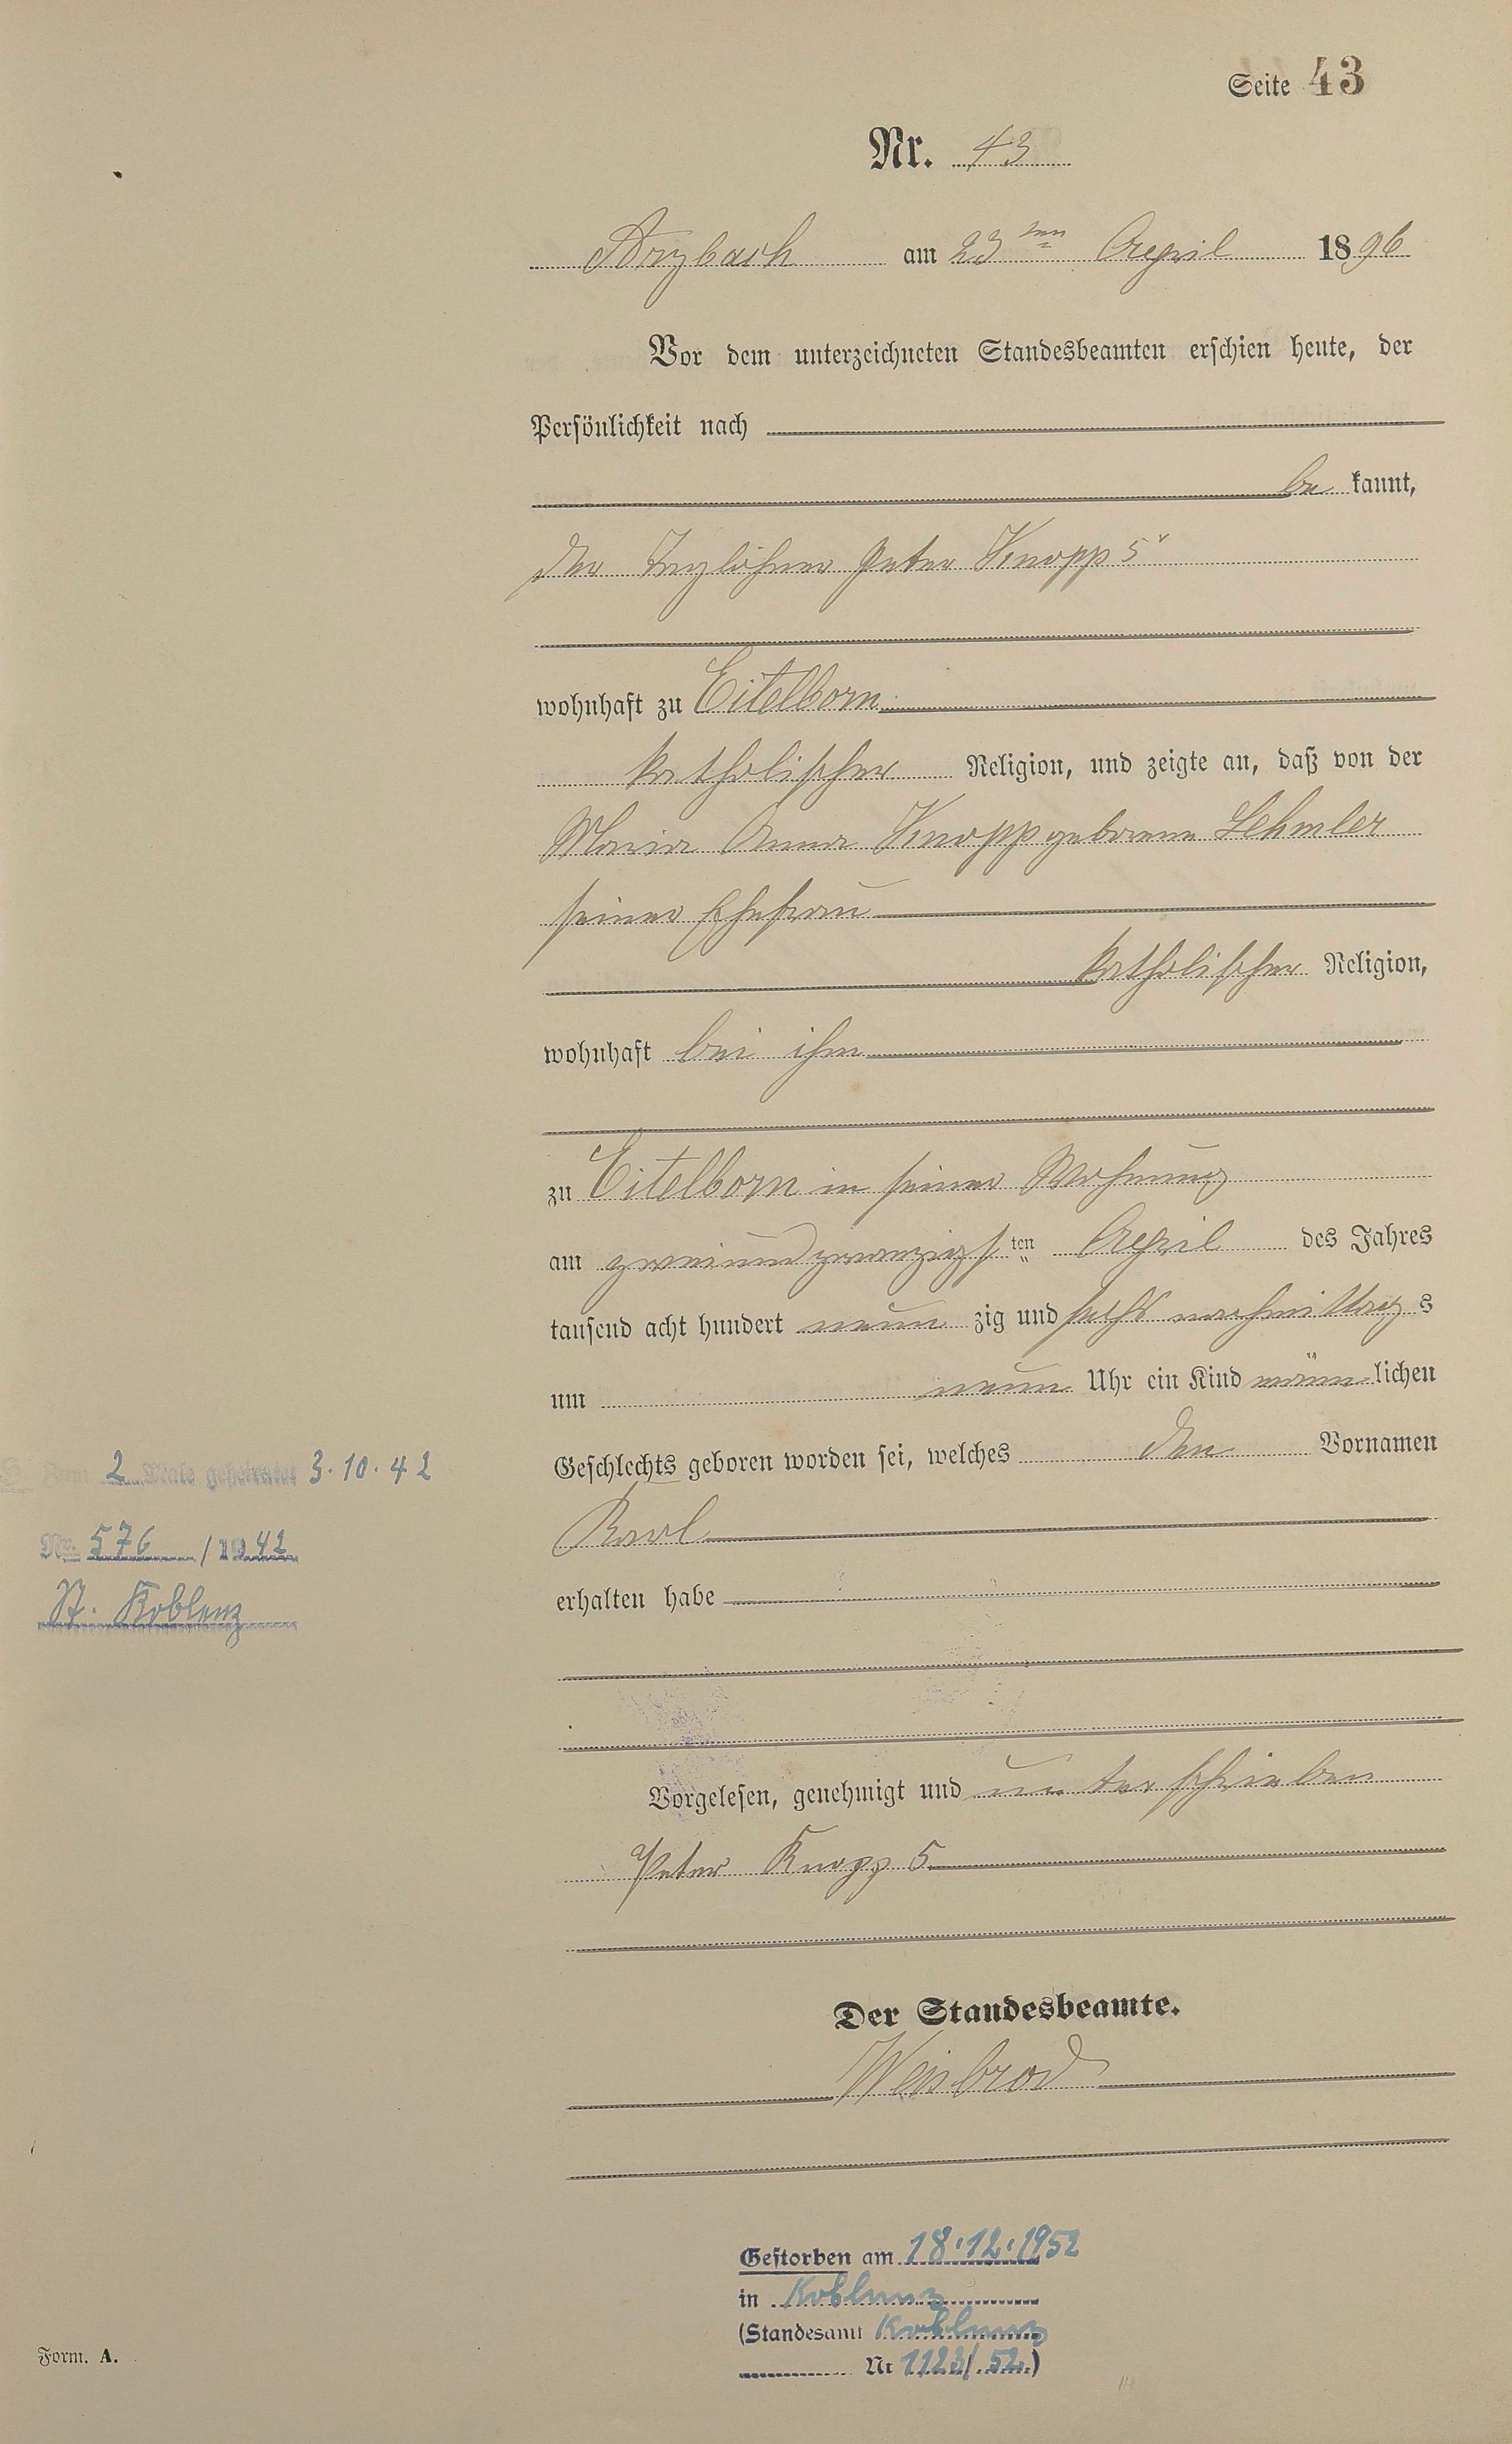 Seite 43
Nr. 43
Arzbach am 23ten April 1896
Vor dem unterzeichneten Standesbeamten erschien heute, der
Persönlichkeit nach
be kannt,
der Taglöhner Peter Knopp 5r
wohnhaft zu Eitelborn
katholischer Religion, und zeigte an, daß von der
Maria Anna Knopp geborene Lehmler
seiner Ehefrau
katholischer Religion,
wohnhaft bei ihm
zu Eitelborn in seiner Wohnung
am zweiundzwanzigsten April des Jahres
tausend acht hundert neun zig und sechs nachmittags
um neun Uhr ein Kind männlichen
Geschlechts geboren worden sei, welches den Vornamen
Karl
erhalten habe
Zum 2 Male geheiratet 3.10.42
Nr. 576 / 1942
St. Koblenz
Vorgelesen, genehmigt und unterschrieben
Peter Knopp 5
Der Standesbeamte.
Weisbrod
Gestorben am 18.12.1952
in Koblenz
(Standesamt Koblenz
Nr 1123/.52.)
Form. A.